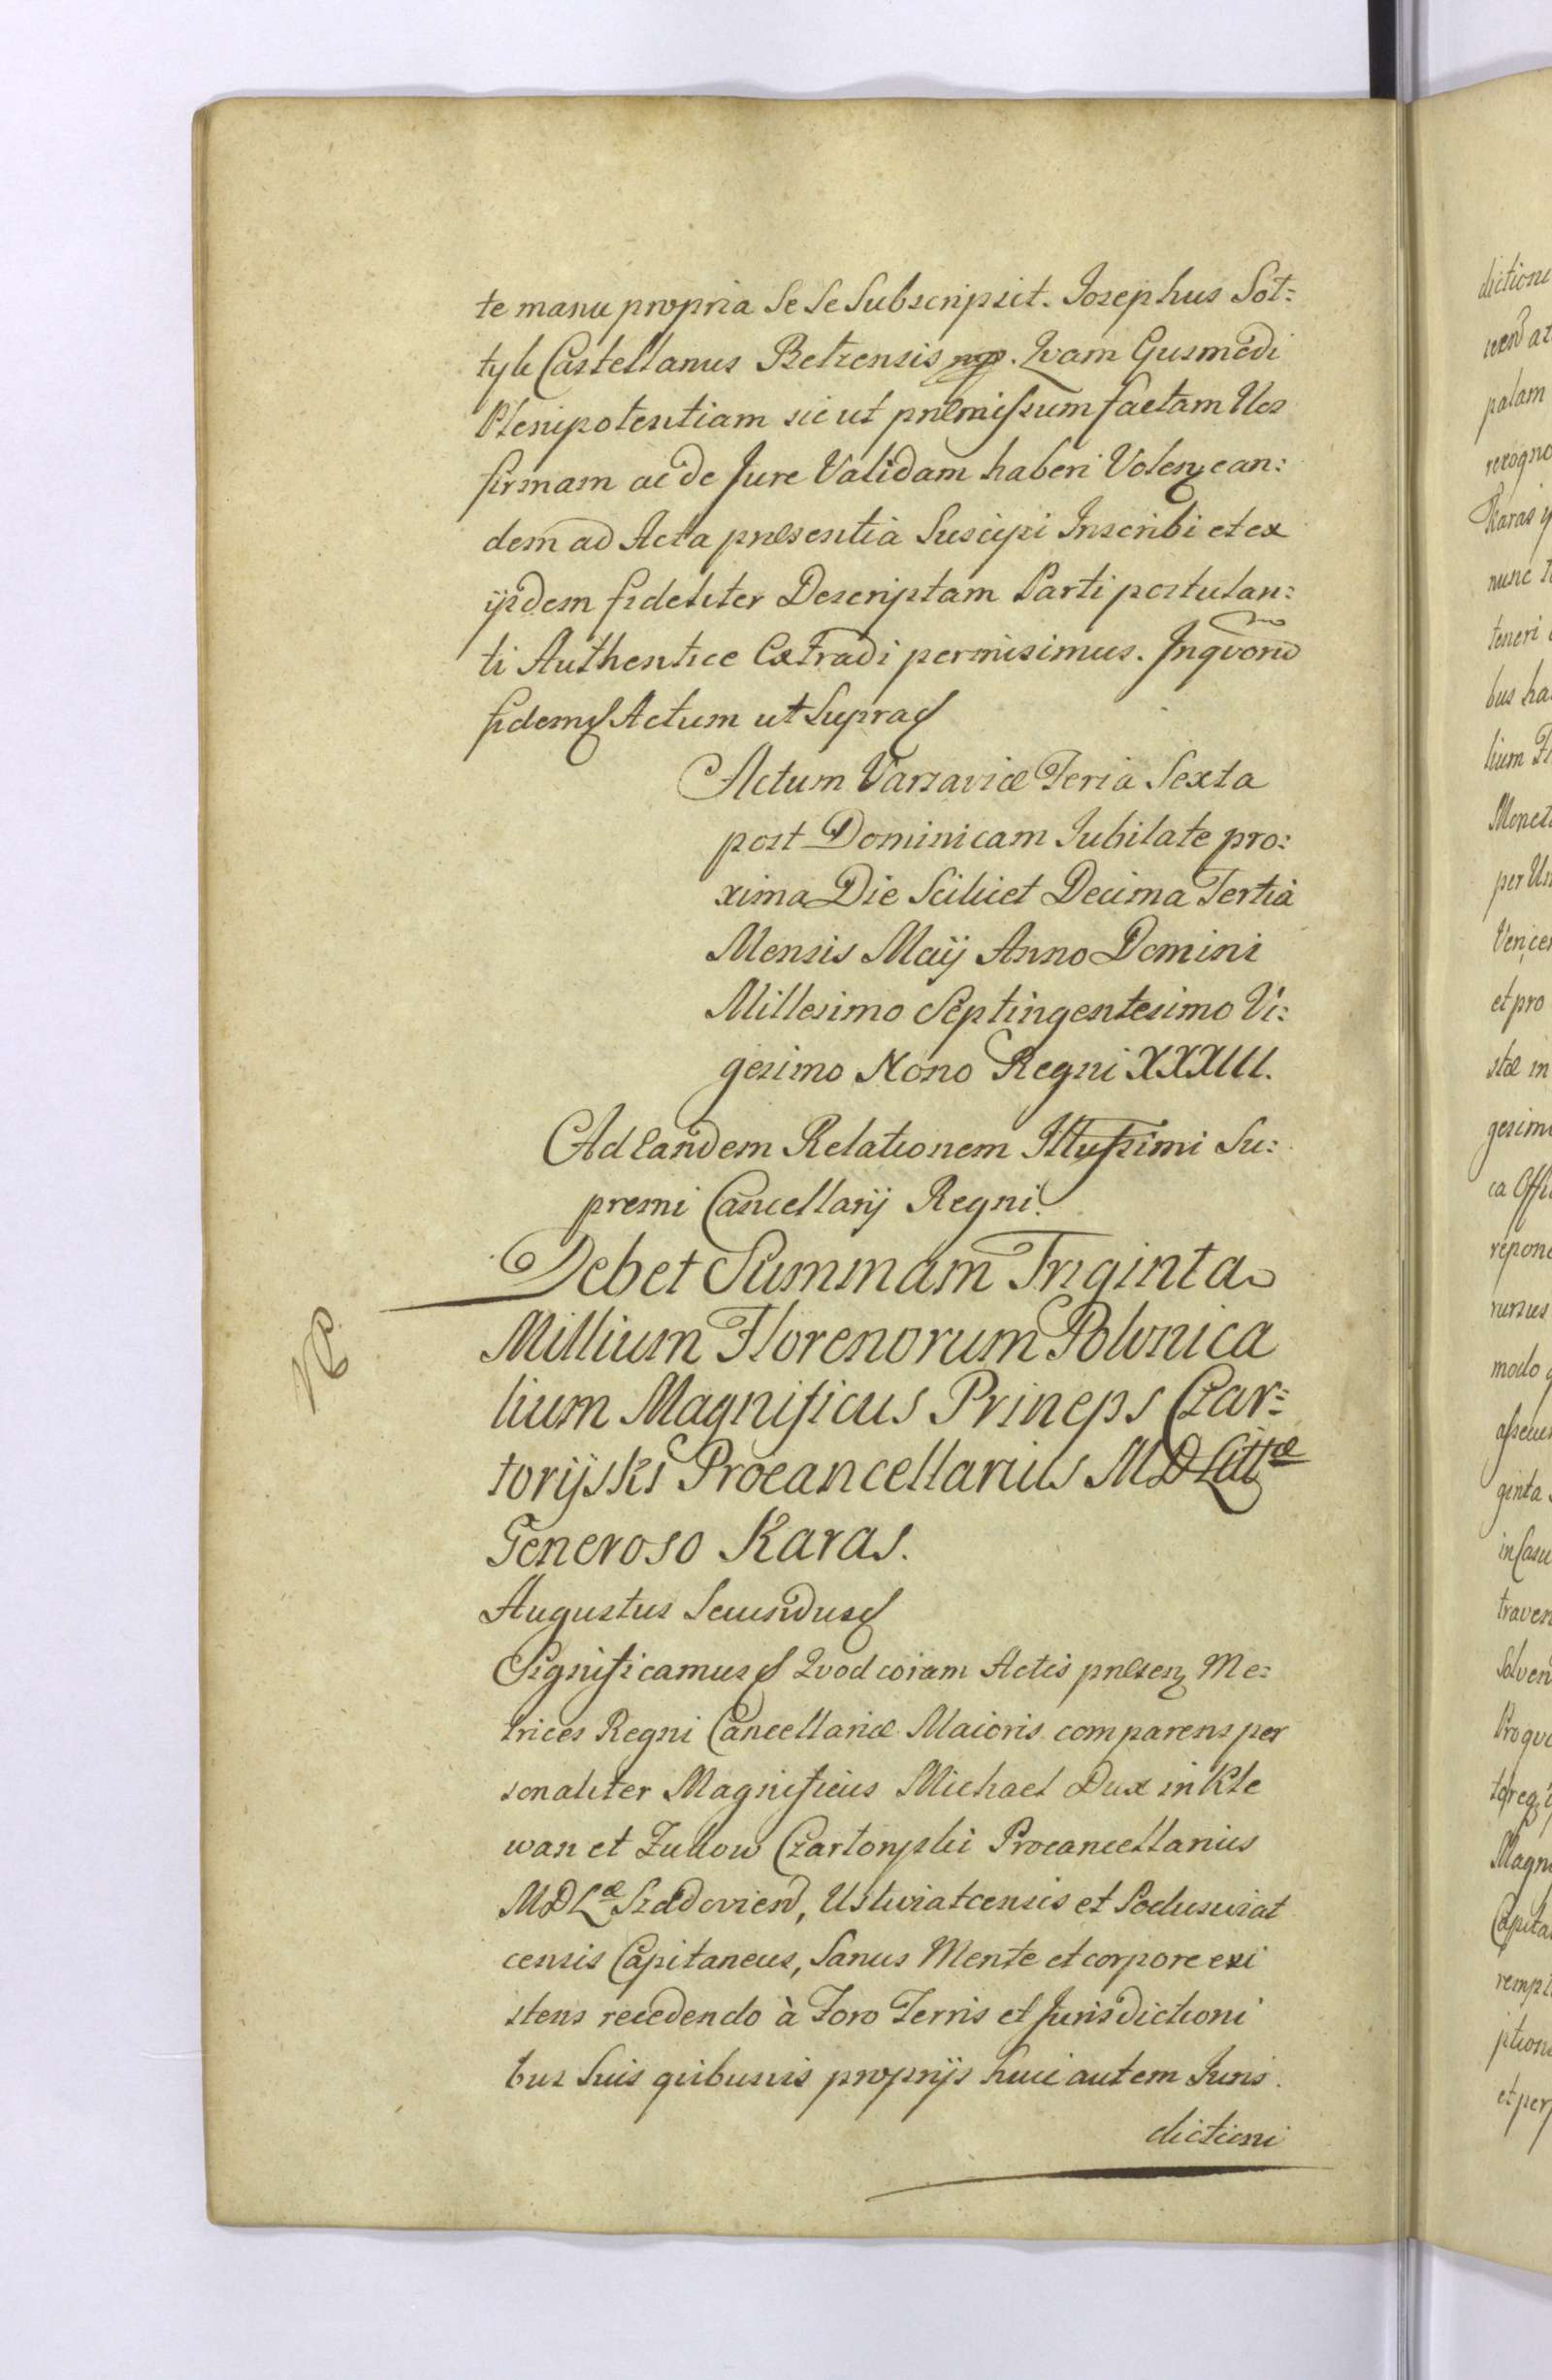 te manu propria Se Se Subscripsit. Josephus Sot=
tyk Castellanus Belzensis mp. Qvam Eiusmodi
Plenipotentiam sic ut pnlmissum factam Uos
firmam ac de Jure Validam haberi Volenz ean=
dem ad Acta pnlsentia Suscipi Inscribi et ex
ijsdem fideliter Descriptam Parti postulan=
ti Authentice Extradi permisimus. In qvorum
fidem Actum ut Supra
Actum Varsaviæ Feria Sexta
post Dominicam Jubilate pro=
xima Die Scilicet Decima Tertia
Mensis Maij Anno Domini
Millesimo Septingentesimo Vi=
gesimo Nono Regni XXXIII.
Ad Eandem Relationem Illussimi Su=
premi Cancellarij Regni.
Debet Summam Triginta
Millium Florenorum Polonica
lium Magnificus Prineps Czar=
torijski Procancellarius M D Litt
Generoso Karas.
Augustus Secundus
Significamus Qvod coram Actis pnlsenz Me=
trices Regni Cancellariæ Maioris comparens per
sonaliter Magnificus Michael Dux in Kle
wan et Zukow Czartoryski Procancellarius
MDL Szadoviend, Ustwiatcensis et Podusviat
censis Capitaneus, Sanus Mente et corpore exi
stens recedendo à Foro Terris et Jurisdictioni
bus Suis quibusvis proprijs huic autem Juris
dictioni
dictioni
palam
nunc
teneri
bus ha
lium
Monet
per
et pro
stæ in
gesim
ca Offi
repon
rursus
modo
ginta
in Casu
traven
Solven
Pro qvo
Magn
Capita
ption
et per